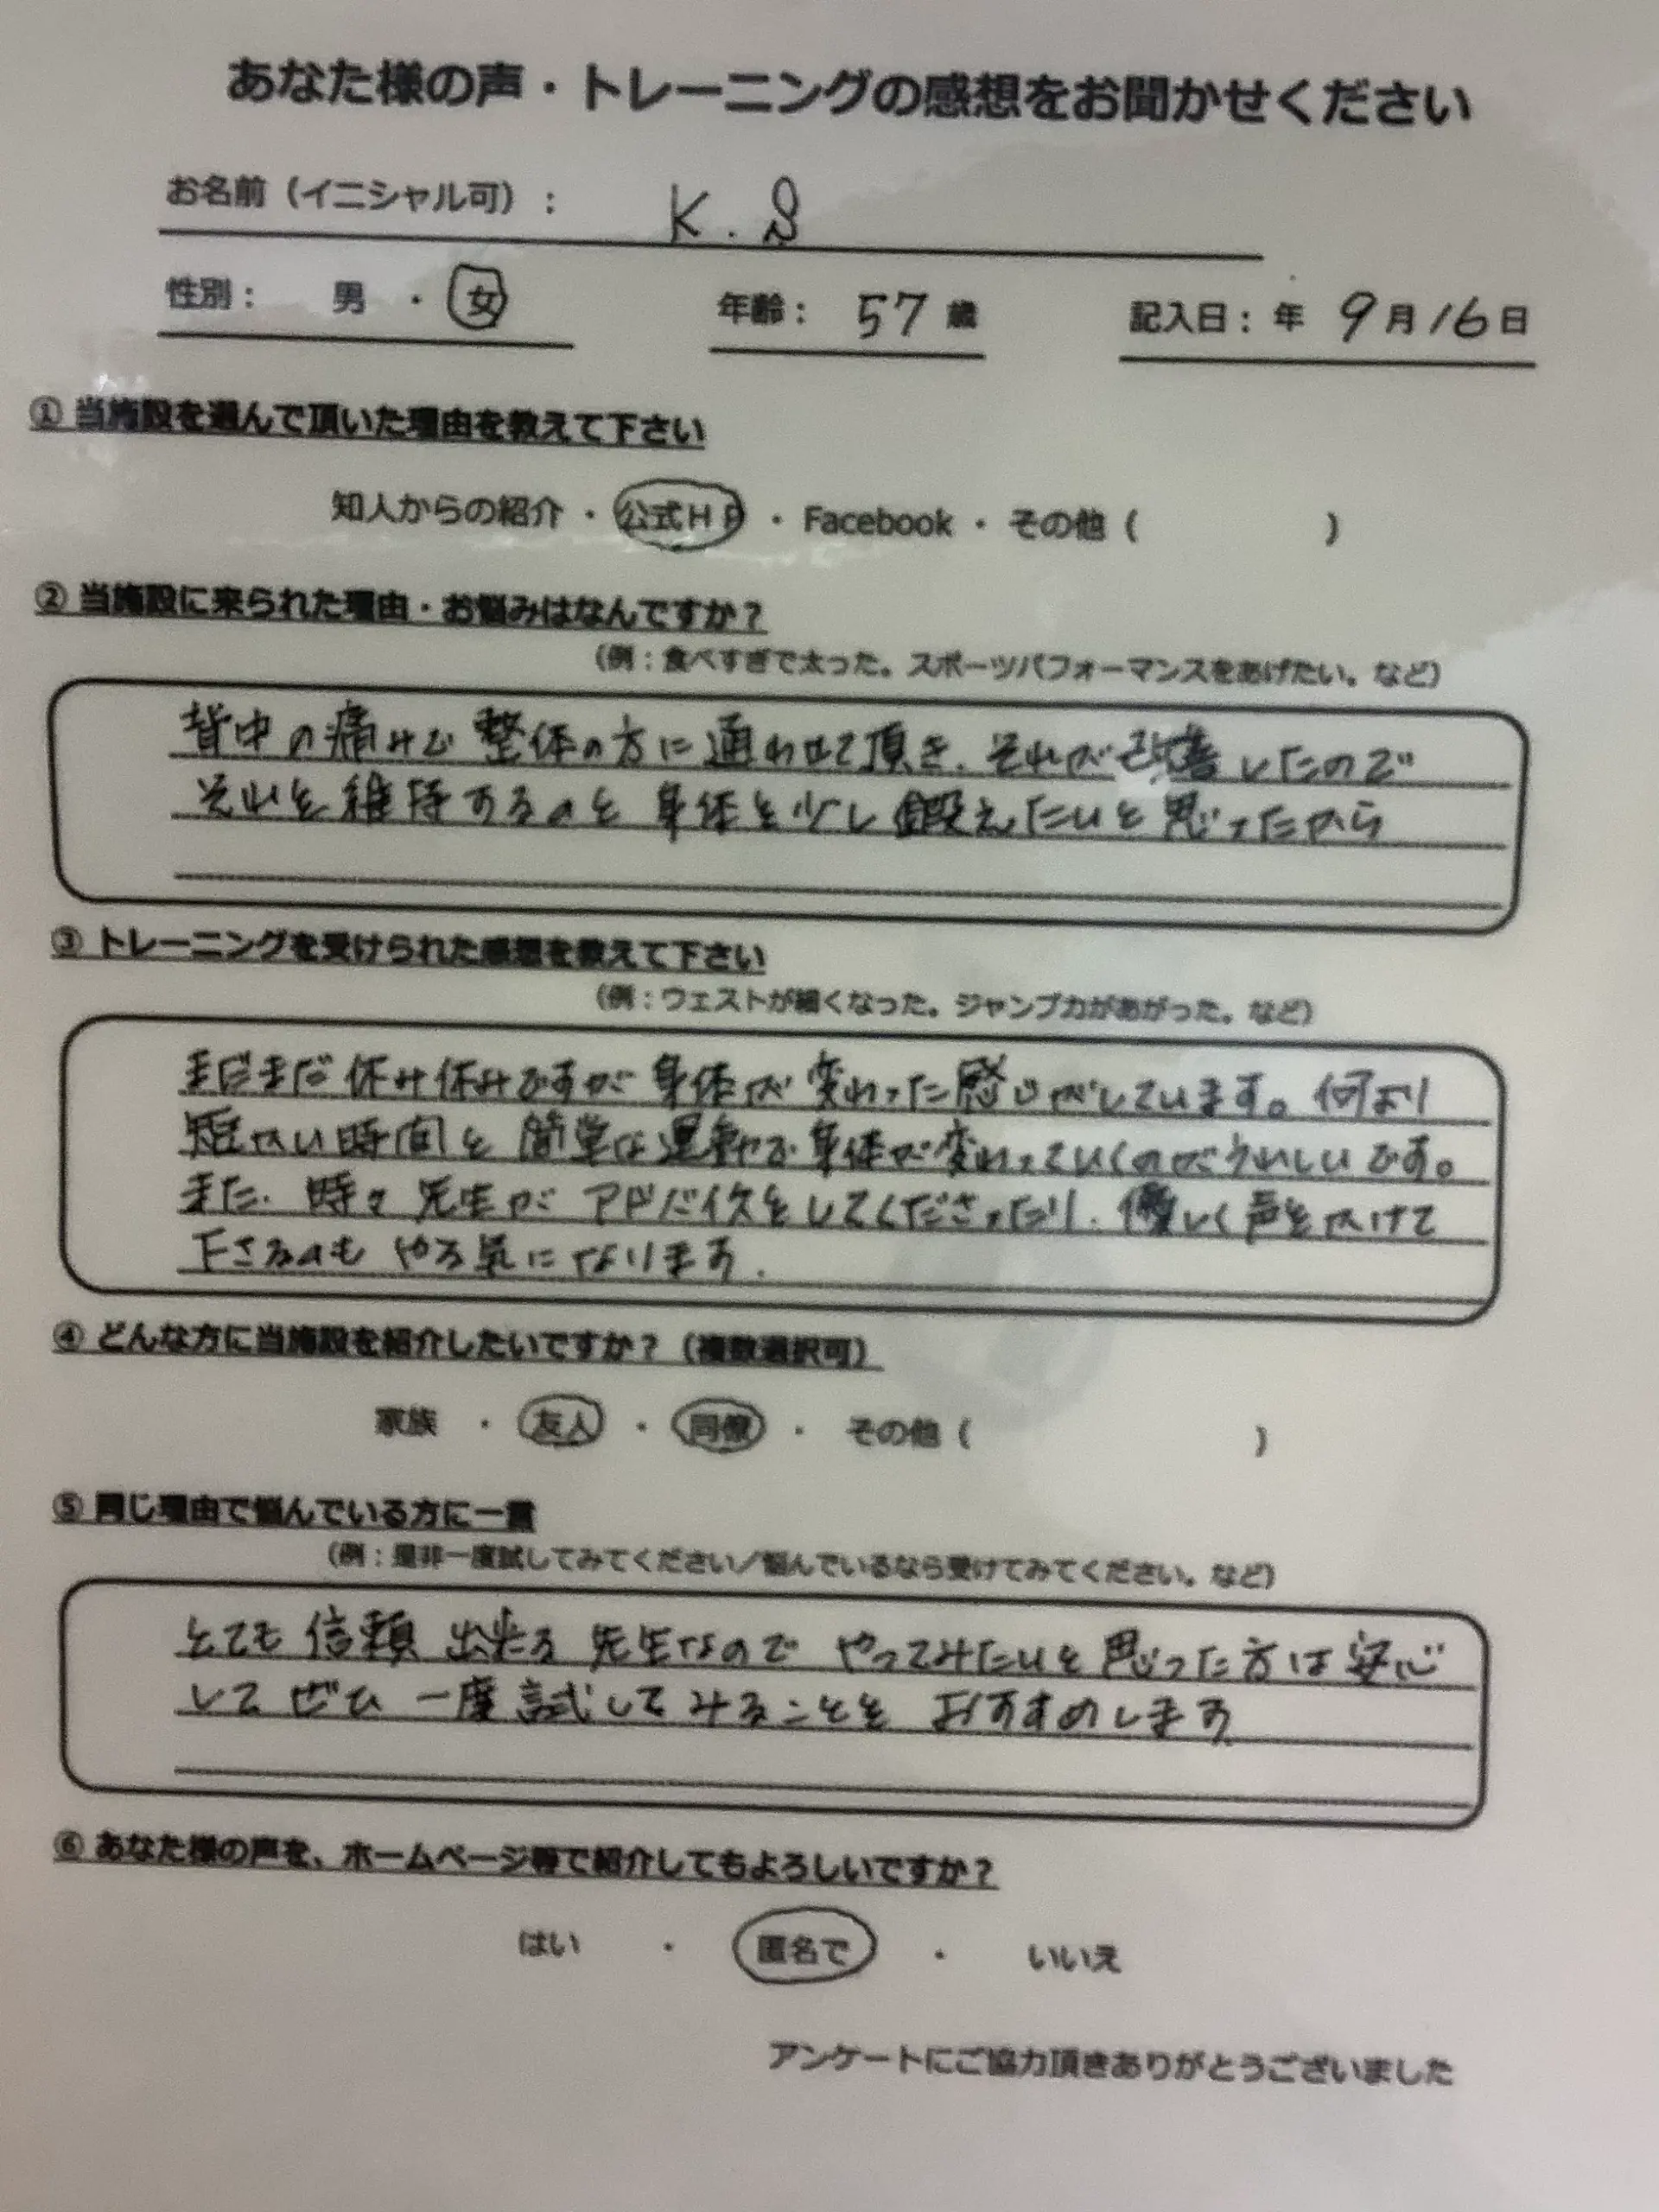 あなた様の声・トレーニングの感想をお聞かせください
お名前（イニシャル可）： K.S
性別： 男 ・ 女 年齢： 57 歳 記入日： 年 9月16日
① 当施設を選んで頂いた理由を教えて下さい
知人からの紹介 ・ 公式HP ・ Facebook ・ その他（ ）
② 当施設に来られた理由・お悩みはなんですか？
（例：食べすぎで太った。スポーツパフォーマンスをあげたい。など）
背中の痛みで 整体の方に通わせて頂き、それが改善したので
それを維持するのと 身体を少し鍛えたいと思ったから
③ トレーニングを受けられた感想を教えて下さい
（例：ウェストが細くなった。ジャンプ力があがった。など）
まだまだ休み休みですが 身体が変わった感じがしています。何より
短かい時間と 簡単な運動で身体が変わっていくのがうれしいです。
また、時々 先生が アドバイスをしてくださったり、優しく声をかけて
下さるのも やる気になります.
④ どんな方に当施設を紹介したいですか？（複数選択可）
家族 ・ 友人 ・ 同僚 ・ その他（ ）
⑤ 同じ理由で悩んでいる方に一言
（例：是非一度試してみてください／悩んでいるなら受けてみてください。など）
とても 信頼 出来る 先生なので やってみたいと思った方は安心
して ぜひ 一度 試して みることを おすすめします
⑥ あなた様の声を、ホームページ等で紹介してもよろしいですか？
はい ・ 匿名で ・ いいえ
アンケートにご協力頂きありがとうございました